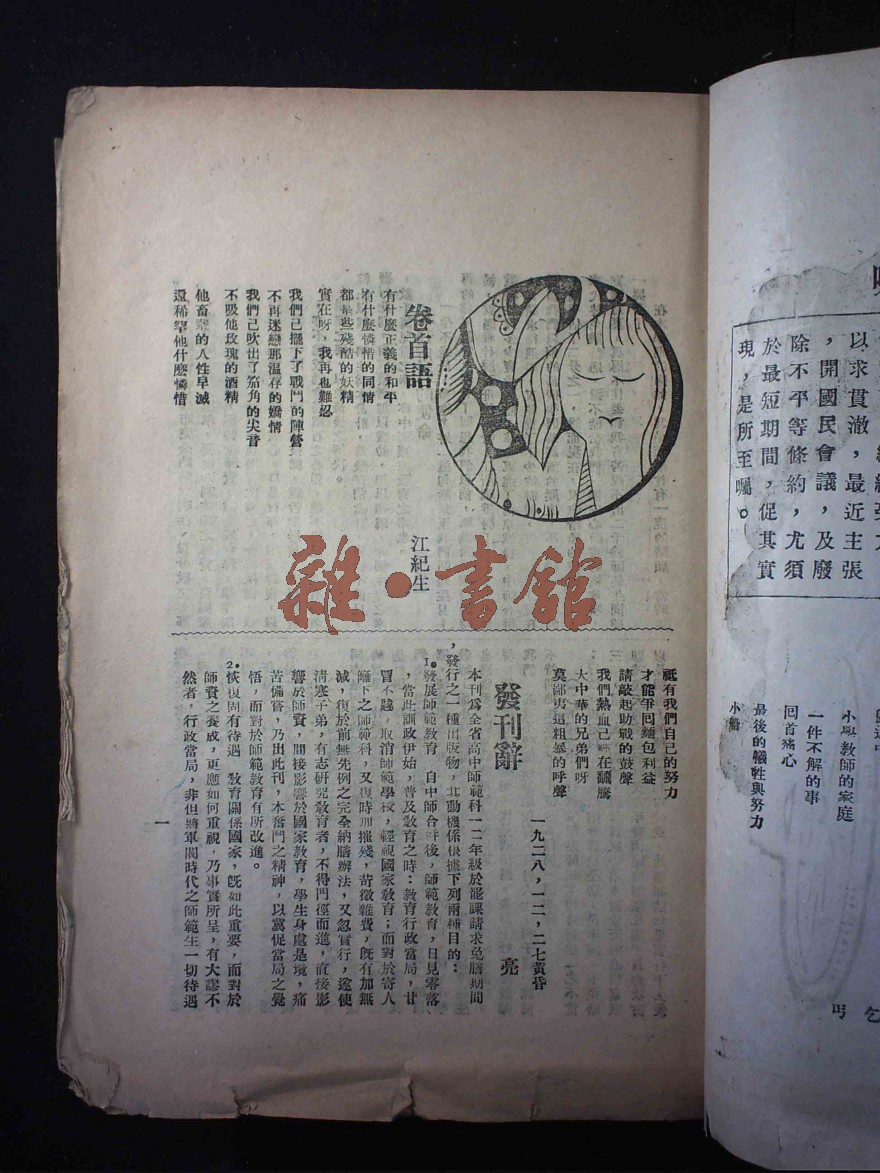 以求貫澈，最近主張
，開國民會議，及廢
除不平等條約，尤須
於最短期間，促其實
現，是所至囑。
小學教師的家庭
一件不解的事
回首痛心
最後的犧牲與努力
小船
乞
丐
卷首語
江紀生
有什麼正義的和平
有什麼憐惜的同情
都是些殘酷的妖精
實在呀，我再也難忍
我們已擺下了戰鬥的陣營
不再迷戀那溫存的嬌情
我們已吹出了笳角的尖音
不吸他玫瑰的酒精
他畜的人性早滅
還稀罕他什麼憐惜
祗有我們自己的努力
才能爭回麵包利益
請敲起助戰的鼓聲
我們熱血已在翻騰
大中華的兄弟們呀
莫鄙夷這粗暴的呼聲
一九二八，一二，二七黃昏
發刊辭
亮
本刊為全省高中師範科一二年級於罷課請求免膳期間
，發行之一種出版物，其動機係根據下列兩種目的：
1。發展師範教育　自中師合併後，師範教育，日見零落
，當此訓政伊始，普及教育之時：教育行政當局，甘
冒不韙，取消師範學校，輕視國家教育；而對於寄人
籬下之師範科，又復時加摧殘，苛徵雜費，既有加無
減，復於前無先例之完全納膳辦法，又忽實行，遂使
清寒子弟，有志研究教育者，不得門徑而進，直接影
響於師資，間接影響於國家教育，學生身處是境，痛
苦備嘗，乃出此刊，本奮鬥之精神，以冀促當局之覺
悟，而對於師範教育有所改進。
2。恢復固有待遇　教育關係國家，既如此重要，而對於
師資之養成，更應如何重視，乃事實所呈，有大謬不
然者，行政當局，非但將軍閥時代之師範生一切待遇
一
雜·書館